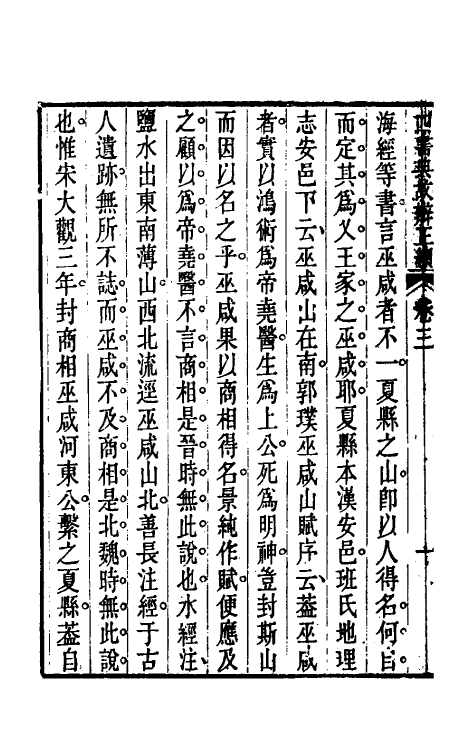 四書典故辨正續 卷三 十
海經等書言巫咸者不一夏縣之山卽以人得名何自
而定其爲乂王家之巫咸耶夏縣本漢安邑班氏地理
志安邑下云巫咸山在南郭璞巫咸山賦序云蓋巫咸
者實以鴻術爲帝堯醫生爲上公死爲明神豈封斯山
而因以名之乎巫咸果以商相得名景純作賦便應及
之顧以爲帝堯醫不言商相是晉時無此說也水經注
鹽水出東南薄山西北流逕巫咸山北善長注經于古
人遺跡無所不誌而巫咸不及商相是北魏時無此說
也惟宋大觀三年封商相巫咸河東公繫之夏縣蓋自